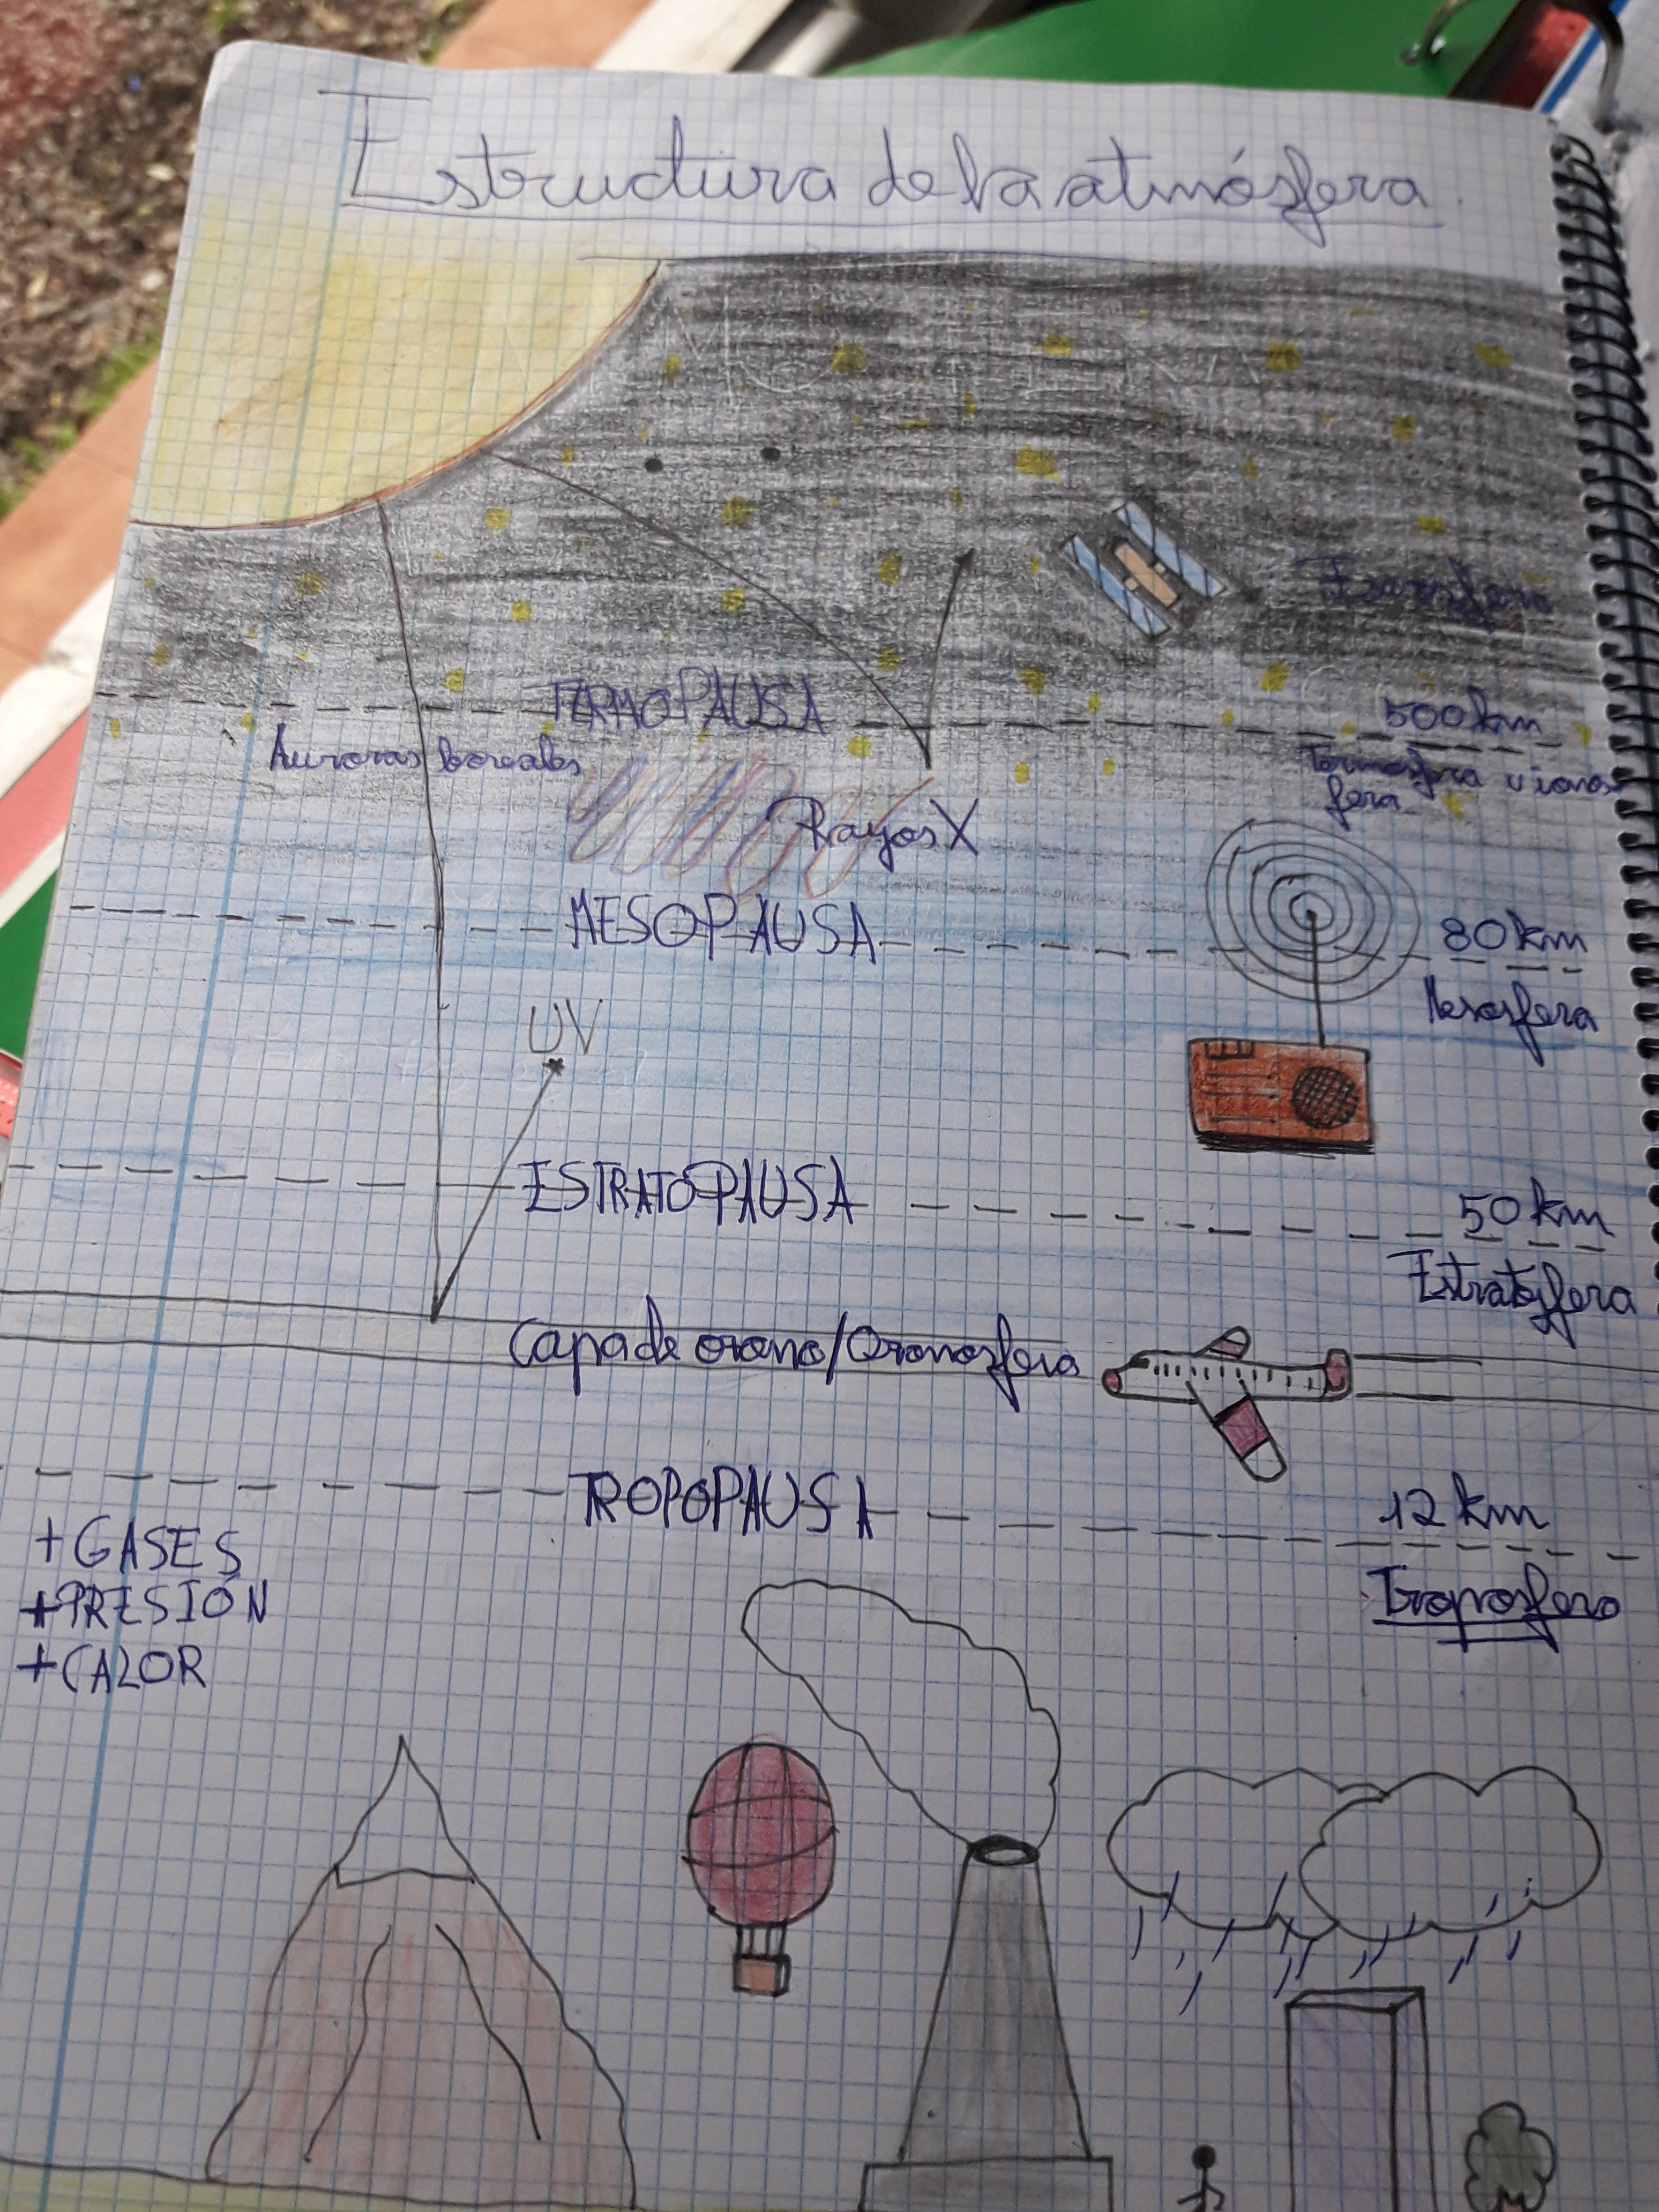 Estructura de la atmósfera
Exosfera
TERMOPAUSA
500 km
Auroras boreales
Termosfera u iono
fera
Rayos X
MESOPAUSA
80 km
Mesosfera
UV
ESTRATOPAUSA
50 km
Estratosfera
Capa de ozono/Ozonosfera
TROPOPAUSA
12 km
+ GASES
+ PRESIÓN
+ CALOR
Troposfera